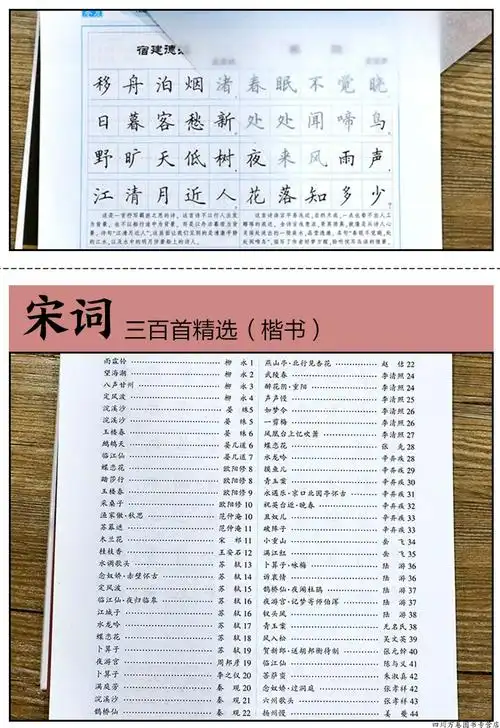 宿建德
移舟泊烟渚 春眠不觉晓
日暮客愁新 处处闻啼鸟
野旷天低树 夜来风雨声
江清月近人 花落知多少
这是一首抒写羁旅之思的诗。这首诗不以行人出发为
背景,也不以船行途中为背景,而是以舟泊暮宿为背
景。诗句"江清月近人",这画面让我们见到的是清澈平静
的江水,以及水中的明月伴着船上的诗人。
这首诗语言平易浅近,自然天成,一点也看不出人工
雕琢的痕迹。
宋词 三百首精选(楷书)
雨霖铃 柳 永 1
望海潮 柳 永 2
八声甘州 柳 永 3
定风波 柳 永 4
浣溪沙 晏 殊 5
浣溪沙 晏 殊 5
玉楼春 晏 殊 6
鹧鸪天 晏几道 6
临江仙 晏几道 7
蝶恋花 欧阳修 8
踏莎行 欧阳修 8
玉楼春 欧阳修 9
采桑子 欧阳修 10
渔家傲·秋思 范仲淹 10
苏幕遮 范仲淹 11
木兰花 宋 祁 11
桂枝香 王安石 12
水调歌头 苏 轼 13
念奴娇·赤壁怀古 苏 轼 14
定风波 苏 轼 15
临江仙·夜归临皋 苏 轼 16
江城子 苏 轼 16
水龙吟 苏 轼 17
蝶恋花 苏 轼 18
卜算子 苏 轼 19
夜游宫 周邦彦 19
卜算子 李之仪 20
满庭芳 秦 观 20
浣溪沙 秦 观 21
鹊桥仙 秦 观 22
燕山亭·北行见杏花 赵 佶 22
武陵春 李清照 24
醉花阴·重阳 李清照 24
声声慢 李清照 25
如梦令 李清照 26
一剪梅 李清照 26
凤凰台上忆吹箫 李清照 27
蝶恋花 张 先 28
水龙吟 辛弃疾 28
摸鱼儿 辛弃疾 29
青玉案 辛弃疾 30
永遇乐·京口北固亭怀古 辛弃疾 31
祝英台近·晚春 辛弃疾 32
丑奴儿 辛弃疾 33
破阵子 辛弃疾 33
小重山 岳 飞 34
满江红 岳 飞 35
卜算子·咏梅 陆 游 36
诉衷情 陆 游 36
鹊桥仙·夜闻杜鹃 陆 游 37
夜游宫·记梦寄师伯浑 陆 游 37
钗头凤 陆 游 38
青玉案 无名氏 38
风入松 吴文英 39
贺新郎·送胡邦衡待制 张元幹 40
临江仙 陈与义 41
菩萨蛮 朱淑真 42
念奴娇·过洞庭 张孝祥 42
六州歌头 张孝祥 43
扬州慢 姜 夔 44
四川万卷图书专营店